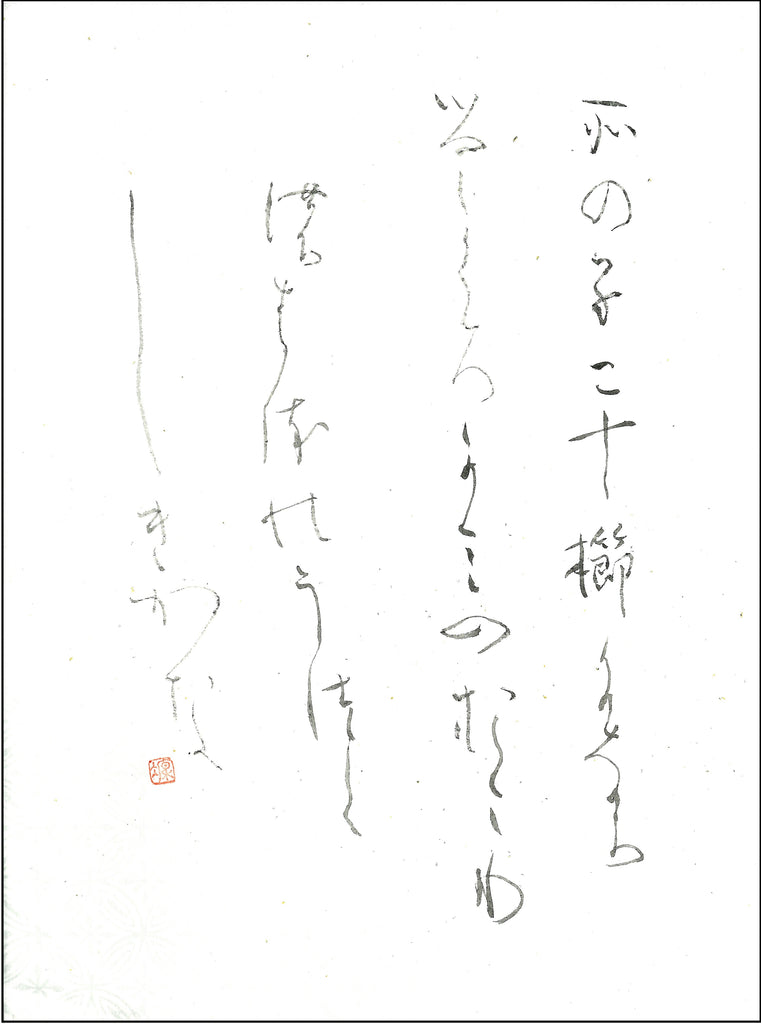 その子二十櫛にながる
るくろかみのおごり
の春のうつく
しきかな